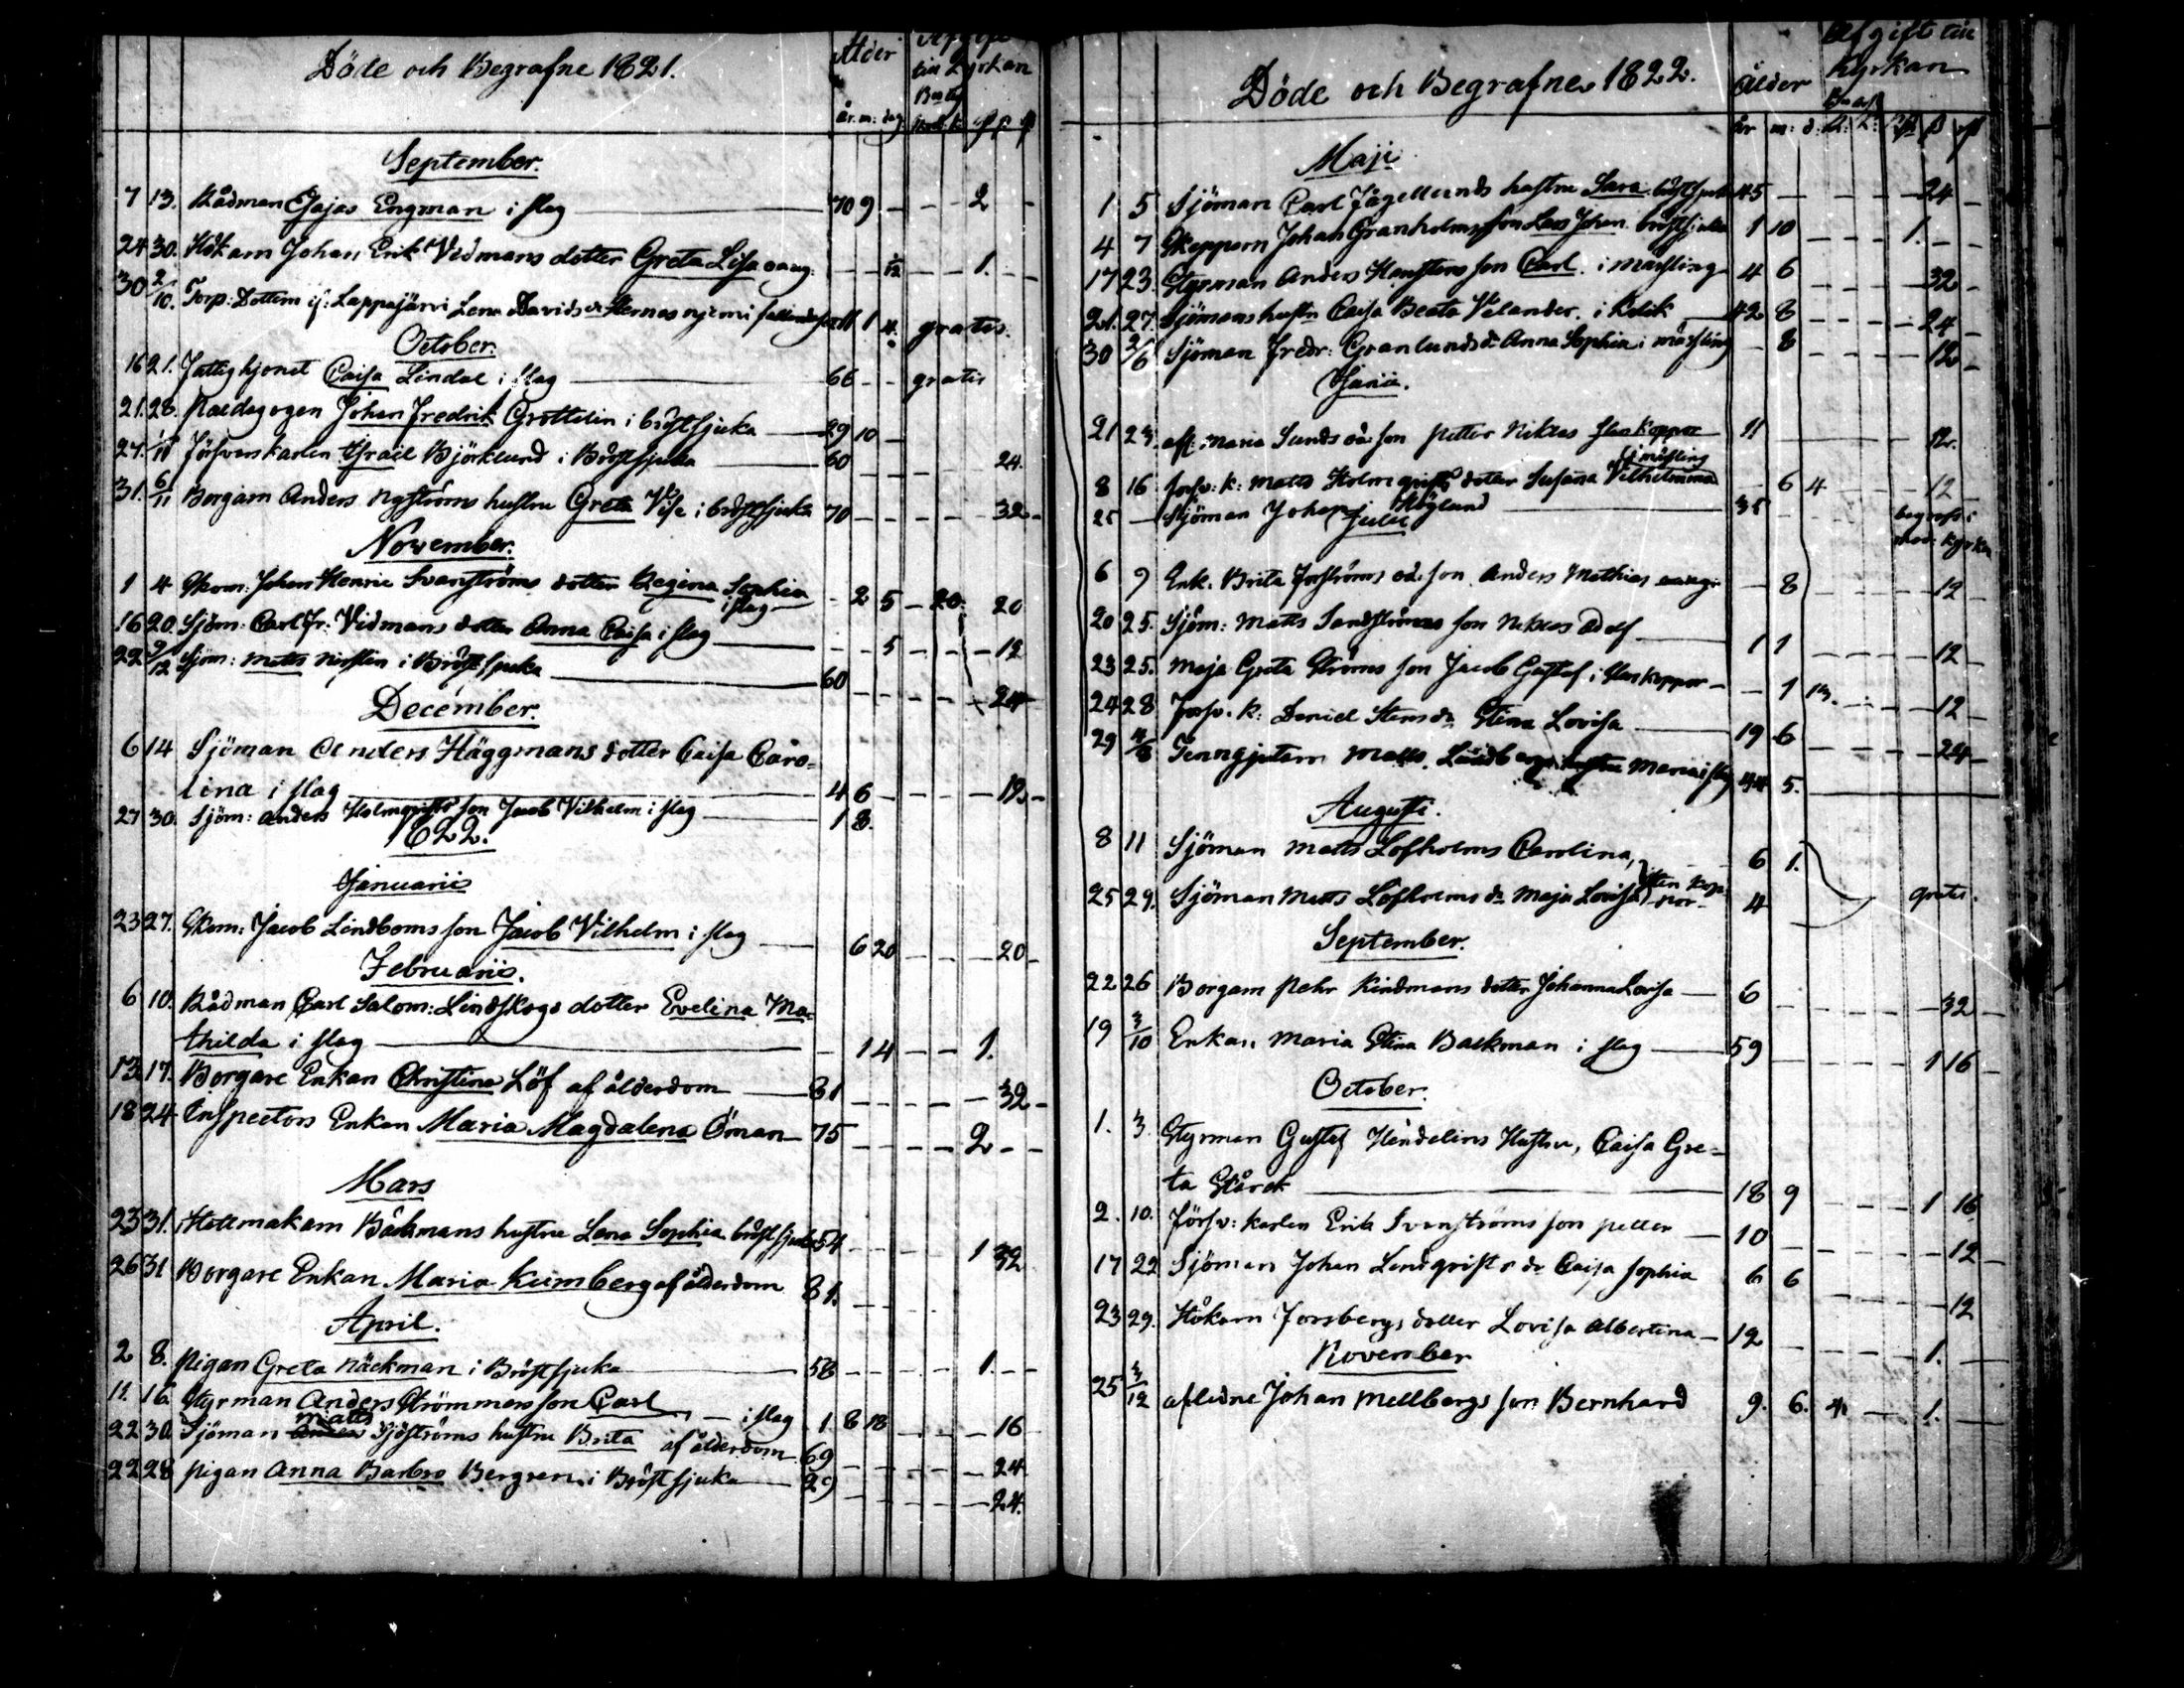 Döde och Begrafne 1821.
Ålder
till Kyrkan
år. m: dag
September.
7 13. Rådman Esajas Engman i slag 70 9 2
24 30. Hökarn Johan Erik Vidmans dotter Greta Lisa oang: 1.
30 2/10. Torp: Dottern if: Lappajärvi Lena Davids dr i fallandesot 11 1 gratis.
October.
16 21. Fattighjonet Caisa Lindal i slag 66 gratis
21. 28. Paedagogen Johan Fredrik Grottelin i bröstsjuka 29 10
27. Försvarskarlen Israel Björklund i Bröstsjuka 60 24.
31. 6/11 Borgarn Anders Nyströms hustru Greta i bröstsjuka 70 32
November.
1 4 Skom: Johan Henric Svanströms dotter Regina Sophia
i slag 2 5 20. 20
16 20. Sjöm: Carl Fr: Vidmans dotter Anna Caisa i slag 5 12
22 2/12 Sjöm: Matts i Bröstsjuka 60 24
December.
6 14 Sjöman Anders Häggmans dotter Caisa Caro=
lina i slag 4 6 12
27 30. Sjöm: Anders Holmqvists son Jacob Vilhelm i slag 1 8.
1822.
Januarii
23 27. Skom: Jacob Lindboms son Jacob Vilhelm i slag 6 20 20
Februarii.
6 10. Rådman Carl Salom: Lindskogs dotter Evelina Ma=
thilda i slag 1 4 1.
13 17. Borgare Enkan Christina Löf af ålderdom 81 32
18 24 Inspectors Enkan Maria Magdalena Öman 75 2
Mars
23 31. Hattmakarn Bäckmans hustru Lena Sophia bröstsjuka 54 1 32
26 31 Borgare Enkan Maria Kumberg af ålderdom 81.
April.
2 8. Pigan Greta Näckman i Bröstsjuka 58 1.
11. 16. Styrman Anders Strömmers son Carl i slag 1. 8 18 16
22 30. Sjöman Matts Sjöströms hustru Brita af ålderdom 69 24
22 28 Pigan Anna Barbro Bergren i Bröstsjuka 29 24.
Döde och Begrafne 1822.
Ålder
Afgift till
Kyrkan
år m: d:
Maji
1 5 Sjöman Carl Fågellunds hustru Sara bröstsjuka 45 24
4 7 Skepparn Johan Granholms son Lars Johan bröstsjuka 1 10 1.
17 23. Styrman Anders Hansténs son Carl i mässling 4 6 32
21. 27. Sjömans hustr Caisa Beata Velander i Kolik 42 8 24
30 2/6 Sjöman Fredr: Granlunds dr Anna Sophia i mässling 8 12
Junii.
21 23. afl: Maria Sunds oä: son Petter Niklas Stenkoppor 11 12.
8 16 Försv: k: Matts Holmqvists dotter Susana Vilhelmina
i mässling 6 4 12
25 Sjöman Johan Höglund 35
begrofs i
mod: Kyrka
Julii
6 9 Enk. Brita Forströms oä: son Anders Mathias oang: 8 12
20 25. Sjöm: Matts Sandströms son Niklas Adolf 1 1 12
23 25. Maja Greta Ströms son Jacob Gustaf i Stenkoppor 1 12
24 28 Försv. k: Daniel Stens dr Stina Lovisa 19 6 24
29 4/8 Tenngjutarn Matts Lindbergs hustru Maria i slag 44 5.
Augusti.
8 11 Sjöman Matts Löfholms Carolina, 6 1.
25 29. Sjöman Matts Löfholms dr Maja Lovisa Sten kop-
por 4 gratis.
September.
22 26 Borgarn Pehr Kindmans dotter Johanna Lovisa 6 32
19 3/10 Enkan Maria Stina Backman i slag 59 1 16
October.
1. 3. Styrman Gustaf Höndelins Hustru, Caisa Gre=
ta Stårck 18 9 1 16
2. 10. Försv: karlen Erik Svanströms son Petter 10 12
17 22 Sjöman Johan Lindqvists dr Caisa Sophia 6 6 12
23 29. Hökarn Forsbergs dotter Lovisa Albertina 12 1.
November
25 3/12 aflidne Johan Mellbergs son Bernhard 9. 6. 4 1.